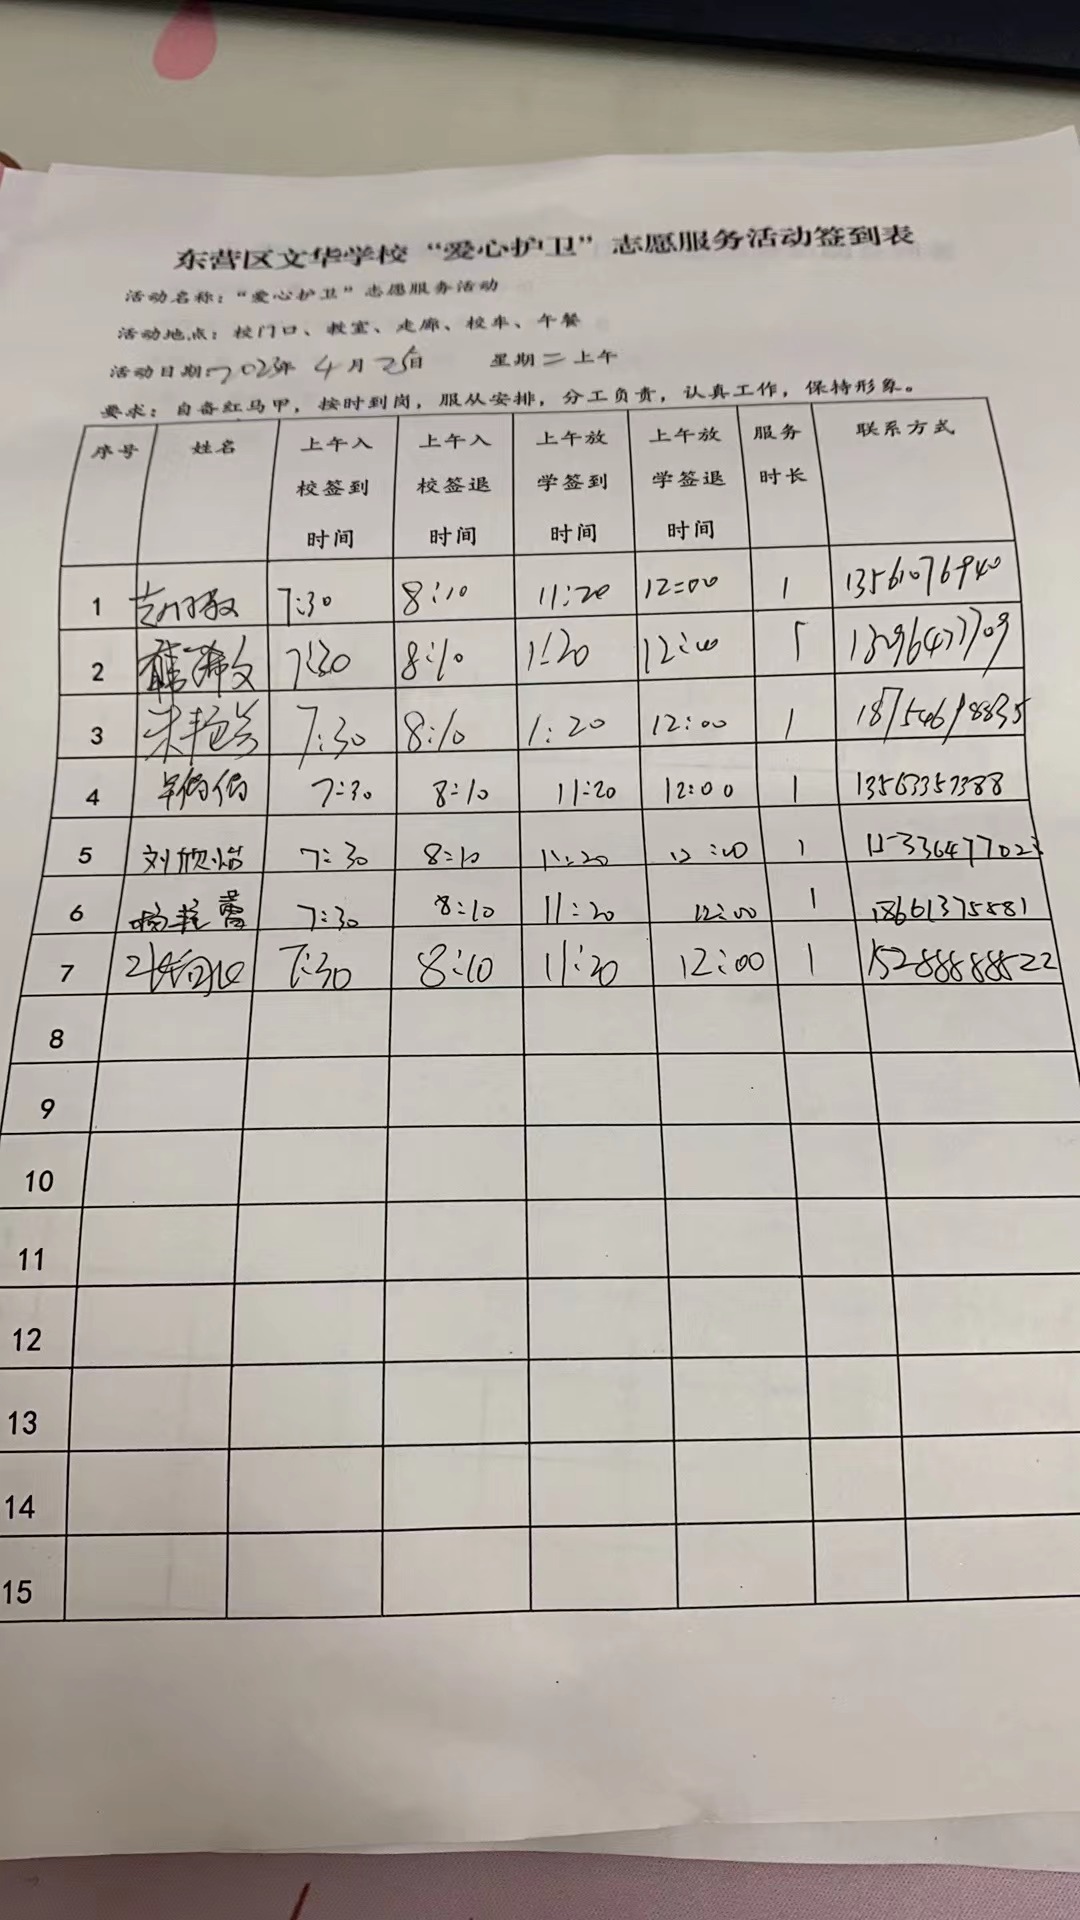 东营区文华学校“爱心护卫”志愿服务活动签到表
活动名称：“爱心护卫”志愿服务活动
活动地点：校门口、教室、走廊、校车、午餐
活动日期：2023年 4月 25日 星期二上午
要求：自备红马甲，按时到岗，服从安排，分工负责，认真工作，保持形象。
序号 姓名 上午入校签到时间 上午入校签退时间 上午放学签到时间 上午放学签退时间 服务时长 联系方式
1 7:30 8:10 11:20 12:00 1 13561076940
2 7:30 8:10 1:20 12:00 1
3 7:30 8:10 1:20 12:00 1 18754698835
4 7:30 8:10 11:20 12:00 1 13563357388
5 刘欣 7:30 8:10 11:20 12:00 1
6 蕾 7:30 8:10 11:20 12:00 1 18661375881
7 7:30 8:10 11:20 12:00 1 15288888822
8
9
10
11
12
13
14
15